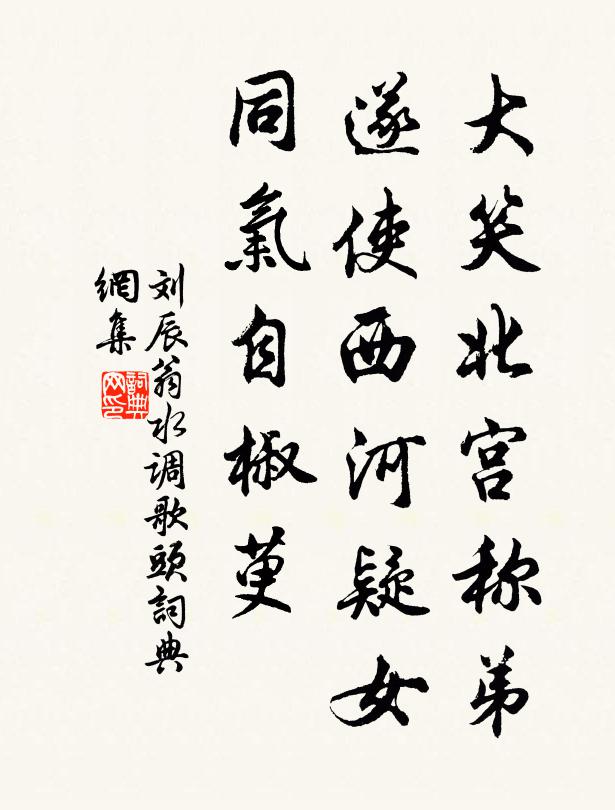 大笑北宫称弟
遂使西河疑女
同氣自椒萸
刘辰翁水调歌頭詞典
網集
詞典
网印